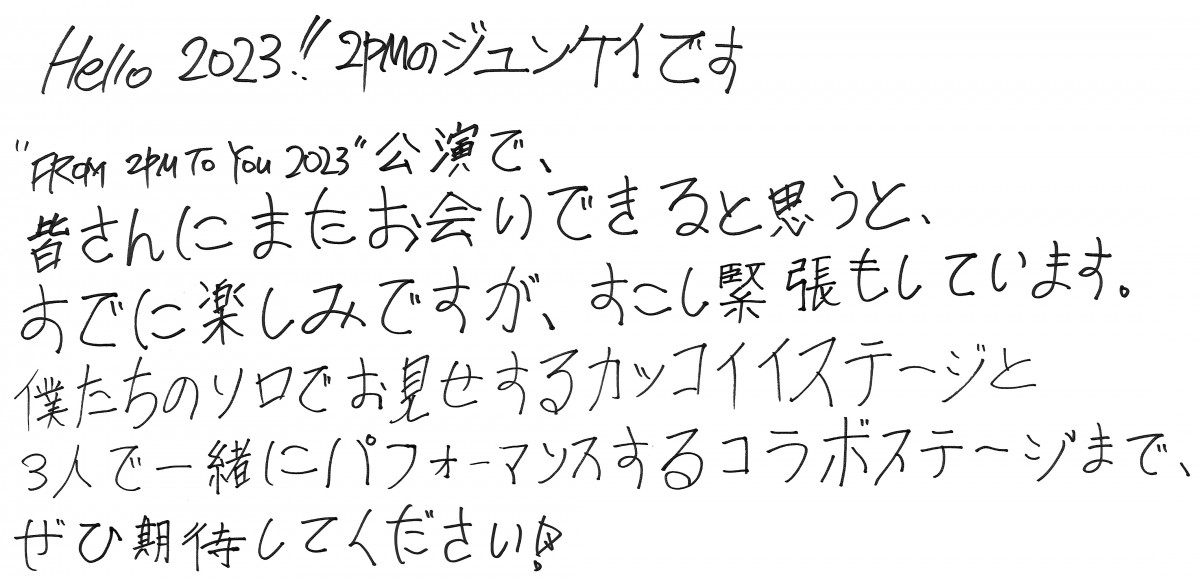 Hello 2023!! 2PMのジュンケイです
"FROM 2PM TO YOU 2023"公演で、
皆さんにまたお会いできると思うと、
すでに楽しみですが、すこし緊張もしています。
僕たちのソロでお見せするカッコイイステージと
3人で一緒にパフォーマンスするコラボステージまで、
ぜひ期待してください!